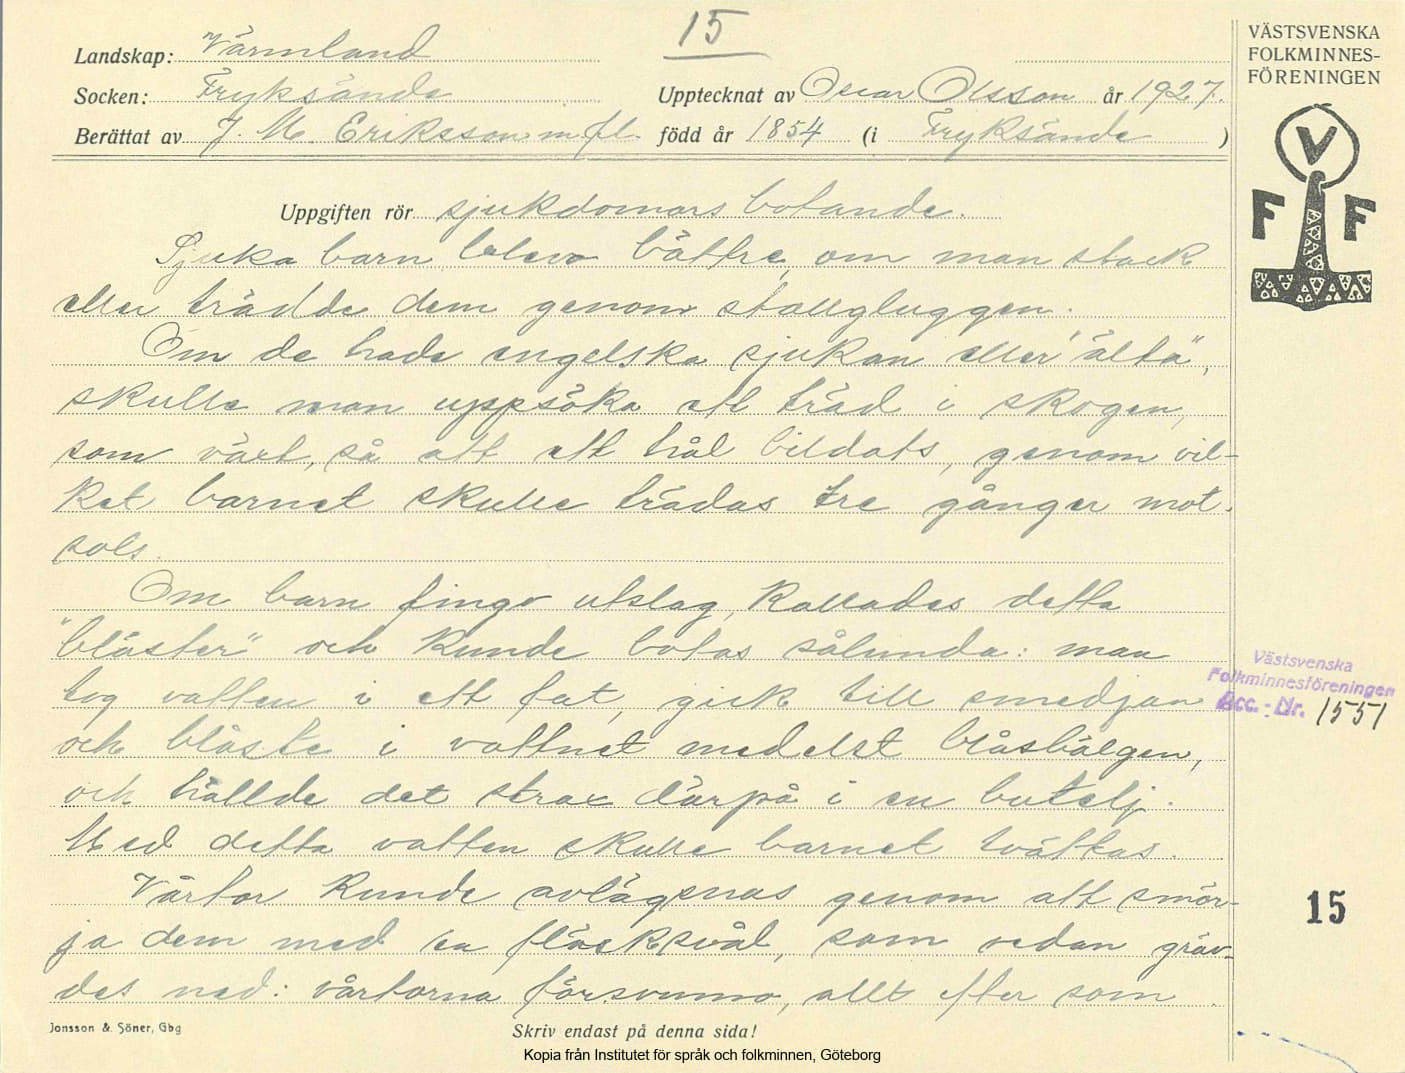 15
VÄSTSVENSKA
FOLKMINNES-
FÖRENINGEN
Landskap: Värmland
Socken: Fryksände
Upptecknat av Oscar Olsson år 1927.
Berättat av J. M. Eriksson m fl. född år 1854 (i Fryksände )
V
F F
Uppgiften rör sjukdomars botande.
Sjuka barn blevo bättre, om man stack
eller trädde dem genom stallgluggen.
Om de hade engelska sjukan eller "ältä",
skulle man uppsöka ett träd i skogen,
som växt, så att ett hål bildats, genom vil-
ket barnet skulle trädas tre gånger mot-
sols.
Om barn fingo utslag, kallades detta
"bläster" och kunde botas sålunda: man
tog vatten i ett fat, gick till smedjan
och blåste i vattnet medelst blåsbälgen,
och hällde det strax därpå i en butelj.
Med detta vatten skulle barnet tvättas.
Vårtor kunde avlägsnas genom att smör-
ja dem med en fläsksvål, som sedan gräv-
des ned: vårtorna försvunno, allt efter som
Västsvenska
Folkminnesföreningen
Acc. - Nr. 1551
15
Jonsson & Söner, Gbg
Skriv endast på denna sida!
Kopia från Institutet för språk och folkminnen, Göteborg